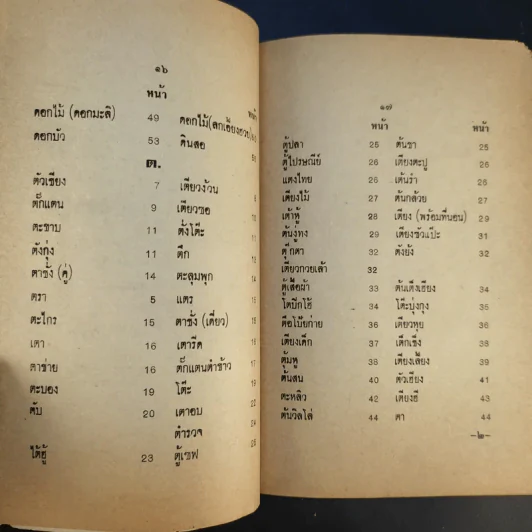 ๑๖
หน้า หน้า
ดอกไม้ (ดอกมะลิ) 49
ดอกบัว 53 ดินสอ
ต.
ตัวเชียง 7 เตียวง้วน 8
ตั๊กแตน 9 เตียวซอ
ตะขาบ 11 ตั้งโต๊ะ
ตังกุ่ง 11 ตึก
ตาชั่ง (คู่) 14 ตะลุมพุก
ตรา 5 แตร
ตะไกร 15 ตาชั่ง (เดี่ยว)
เตา 16 เตารีด
ตาข่าย 16 ตั๊กแตนตำข้าว
ตะบอง 19 โต๊ะ 22
ตับ 20 เตาอบ 24
ตำรวจ
ไต้ฮู้ 23 ตู้เซฟ 25
๑๗
หน้า หน้า
ตู้ปลา 25 ต้นชา 25
ตู้ไปรษณีย์ 26 เตียงตะปู 26
แตงไทย 26 เต้นรำ 26
เตียงไม้ 27 ต้นกล้วย 27
เต้าหู้ 28 เตียง (พร้อมที่นอน) 29
ต้นงู่ทง 29 เตียงชัวแป๊ะ 31
ตุ๊กตา 32 ตังยัง 32
เตียวกวยเล้า 32
ตู้เสื้อผ้า 33 ต้นเต็งเฮียง 34
โตบักโฮ้ 34 โต๊ะบุ่งกุง 35
ตือโป๊ยก่าย 36 เตียวหุย 36
เตียงเด็ก 37 เต็กเซ็ง 38
ตุ้มหู 38 เตียงเลี้ยง 39
ต้นสน 40 ตัวเฮียง 41
ตะหลิว 42 เตียงฮี 43
ต้นวิลโล่ 44 ตา 44
–๒–